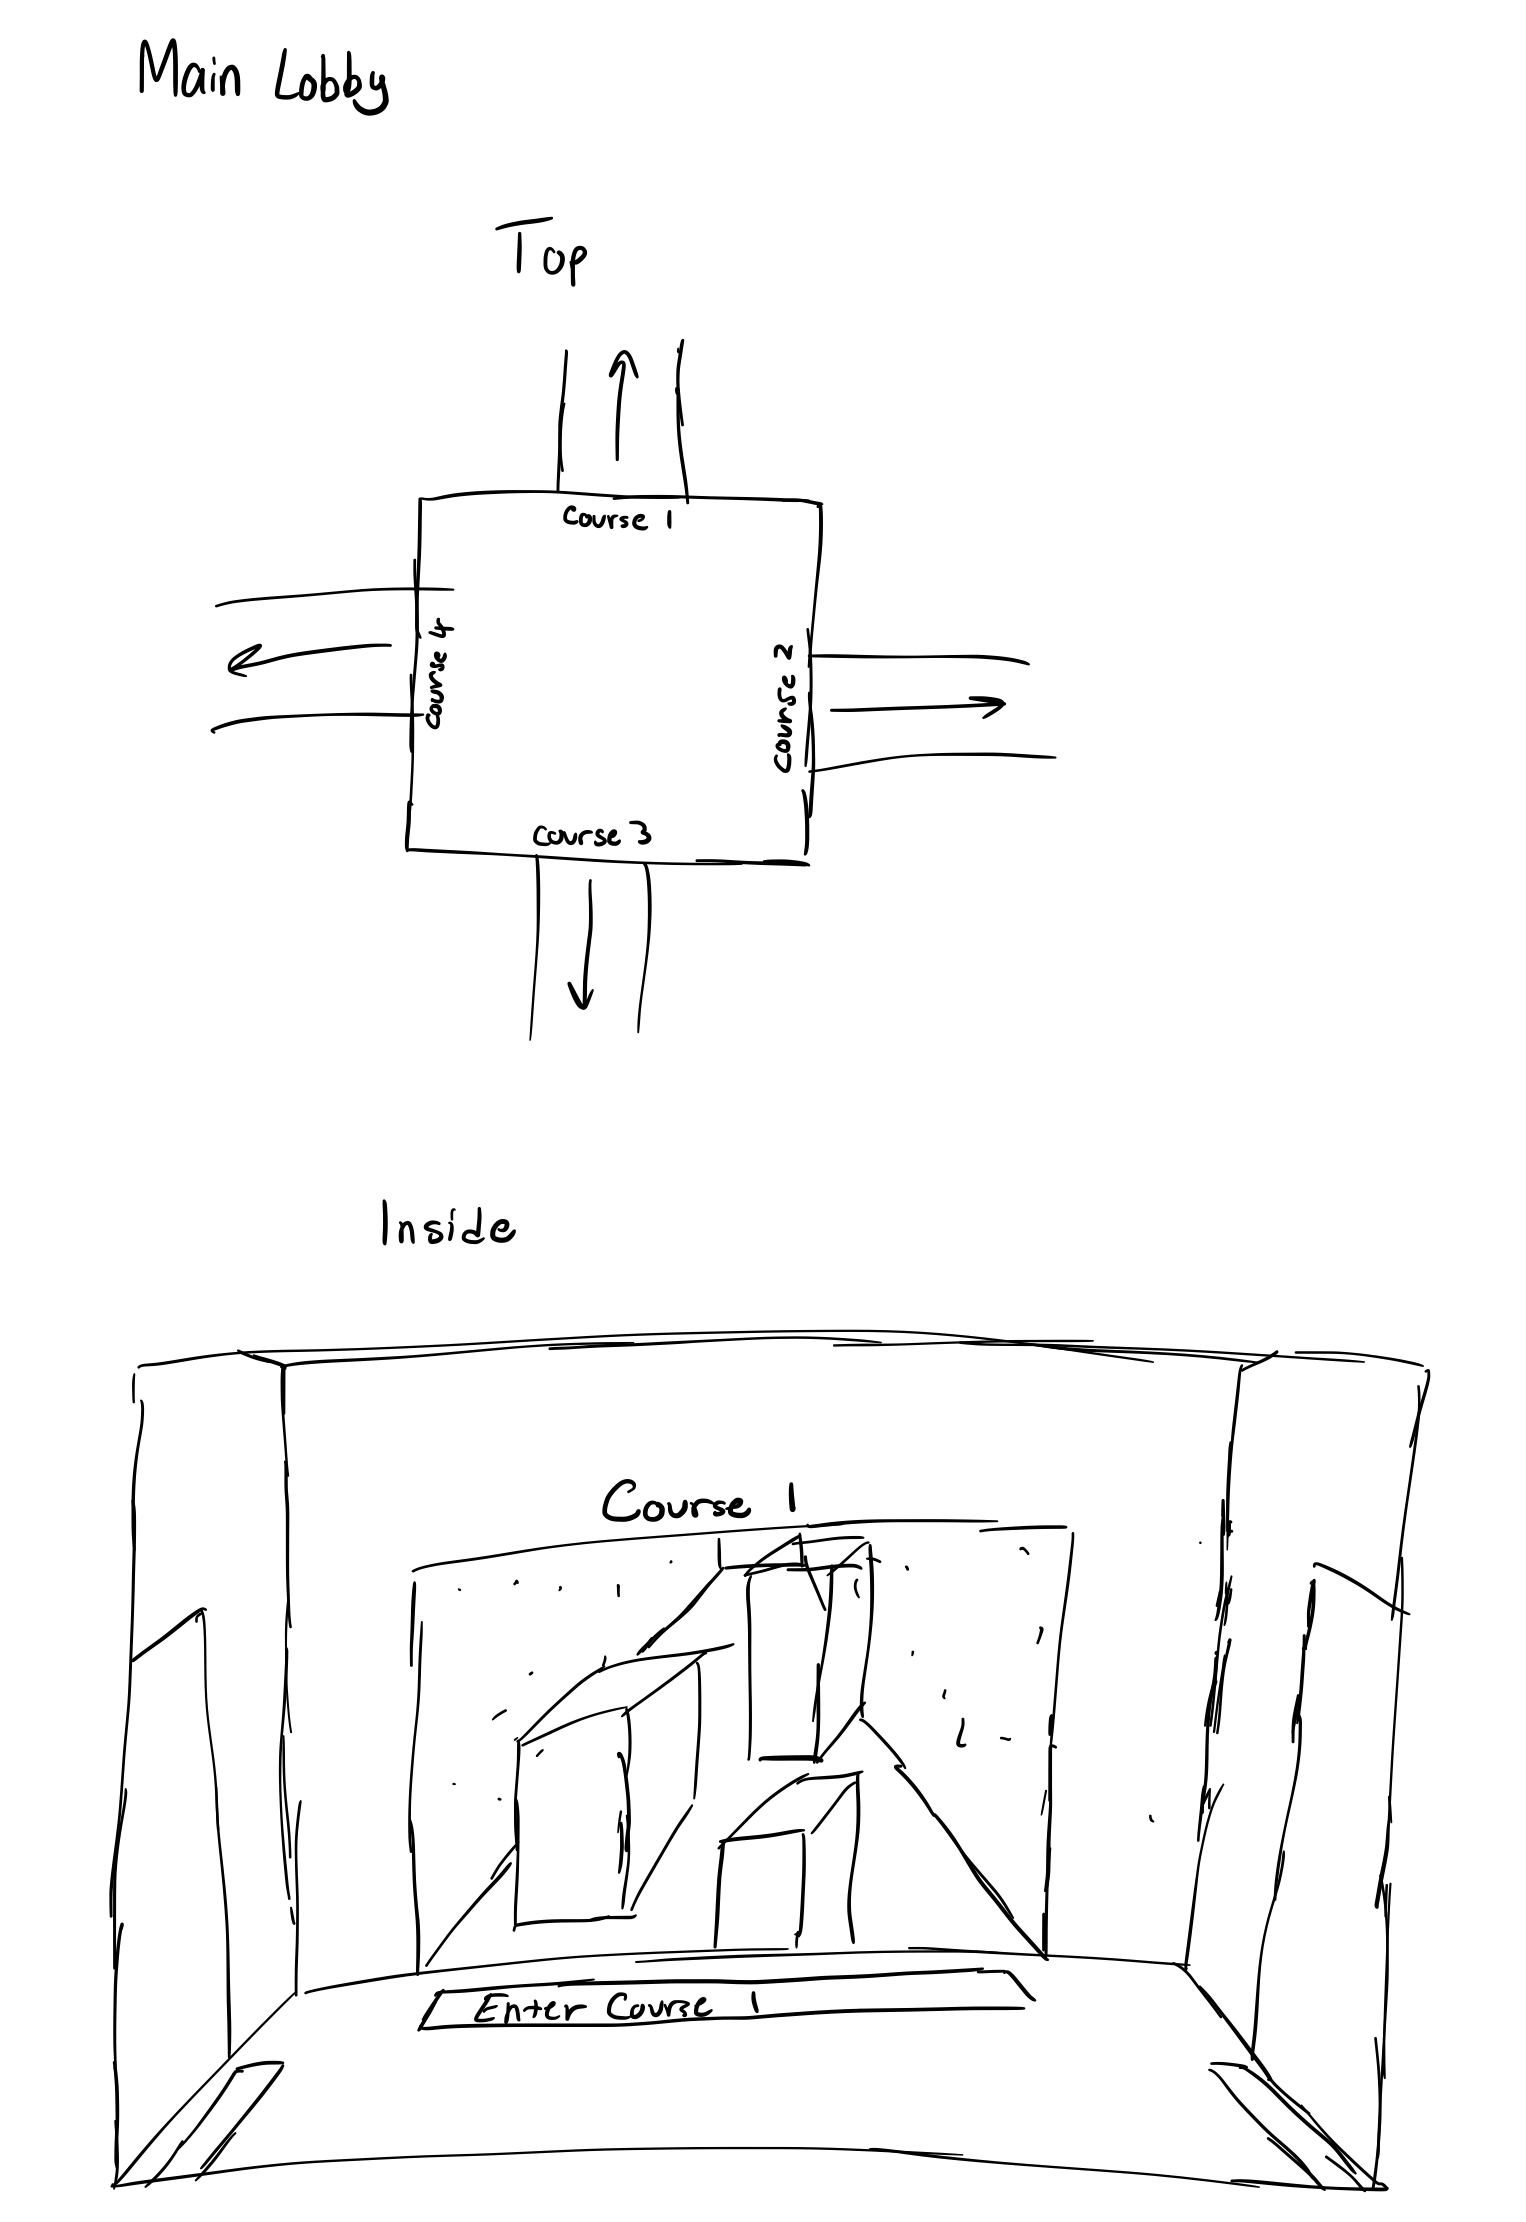 Main Lobby
Top
Course 1
Course 4
Course 2
Course 3
Inside
Course 1
Enter Course 1